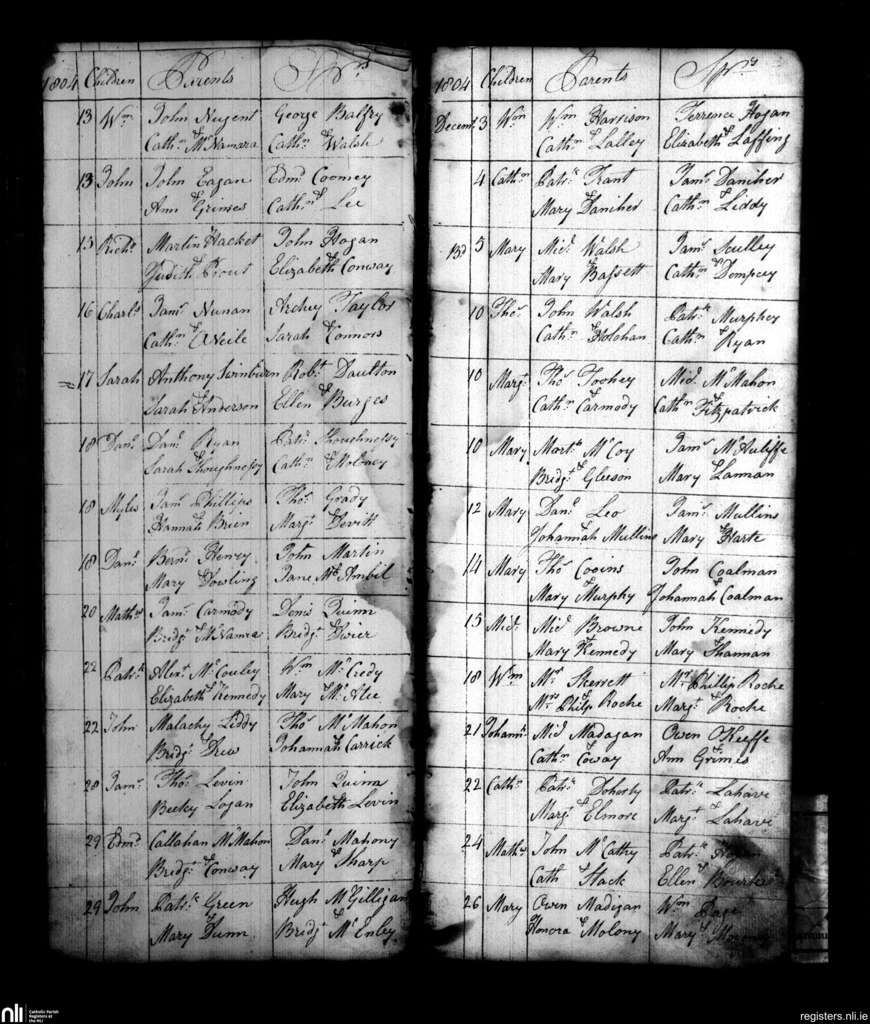 1804 Children Parents Sprs
13 Wm John Nugent George Balfry
Cathn & McNamara Cathn & Walsh
13 John John Eagan Edmd Coomey
Ann & Grimes Cathn & Lee
15 Richd Martin Hacket John Hogan
Judith & Prout Elizabeth & Conway
16 Charls Jams Nunan Archey Taylor
Cathn & ONeile Sarah & Connors
17 Sarah Anthony Swinburn Robt Daulton
Sarah & Anderson Ellen & Burges
18 Danl Danl Ryan Patrk Shoughnessy
Sarah & Shoughnessy Cathn &
18 Myles Jams Phillips Thos Grady
Hannah & Brien Margt & Devitt
18 Danl Bernd Henry John Martin
Mary & Dowling Jane & McAmbil
20 Mathw Jams Carmody Denis Quinn
Bridgt & McNamra Bridgt & Dwier
22 Patrk Alexr McCouley Wm McCredy
Elizabeth & Kennedy Mary & McAlie
22 John Malachy Liddy Thos McMahon
Bridgt & Hew Johannah & Carrick
28 Jams Thos Levin John Quinn
Becky Logan Elizabeth & Levin
29 Edmd Callahan McMahon Danl Mahony
Bridgt & Conway Mary & Sharp
29 John Patrk Green Hugh McGilligan
Mary & Dunn Bridgt & McEnley
1804 Children Parents Sprs
Decembr 3 Wm Wm Harrison Terrence Hogan
Cathn & Lalley Elizabeth & Laffing
4 Cathn Patrk Trant Jams Daniher
Mary & Daniher Cathn & Liddy
Bd 5 Mary Michl Walsh Jams Sculley
Mary & Bassett Cathn & Dempcey
10 Thos John Walsh Patrk Murphey
Cathn & Holohan Cathn & Ryan
10 Margt Thos Toohey Michl McMahon
Cathn & Carmody Cathn & Fitzpatrick
10 Mary Martn McCoy Jams McAuliffe
Bridgt & Gleeson Mary & Lannan
12 Mary Danl Leo Jams Mullins
Johannah Mullins Mary & Harte
14 Mary Thos Cooins John Coalman
Mary & Murphy Johannah & Coalman
15 Michl Michl Browne John Kennedy
Mary & Kennedy Mary & Shannan
18 Wm Mr Skerrett Mr Phillip Roche
Mrs Philp Roche Margt & Roche
21 Johanna Michl Madagan Owen OKeeffe
Cathn & Coway Ann & Grimes
22 Cathn Patrk Doherty Patrk Lahave
Margt & Elmore Margt & Lahave
24 Mathw John McCathy Patrk
Cath & Hack Ellen & Bourke
26 Mary Owen Madigan Wm Page
Honora & Molony Mary &
nli Catholic Parish
Registers at
the NLI
registers.nli.ie